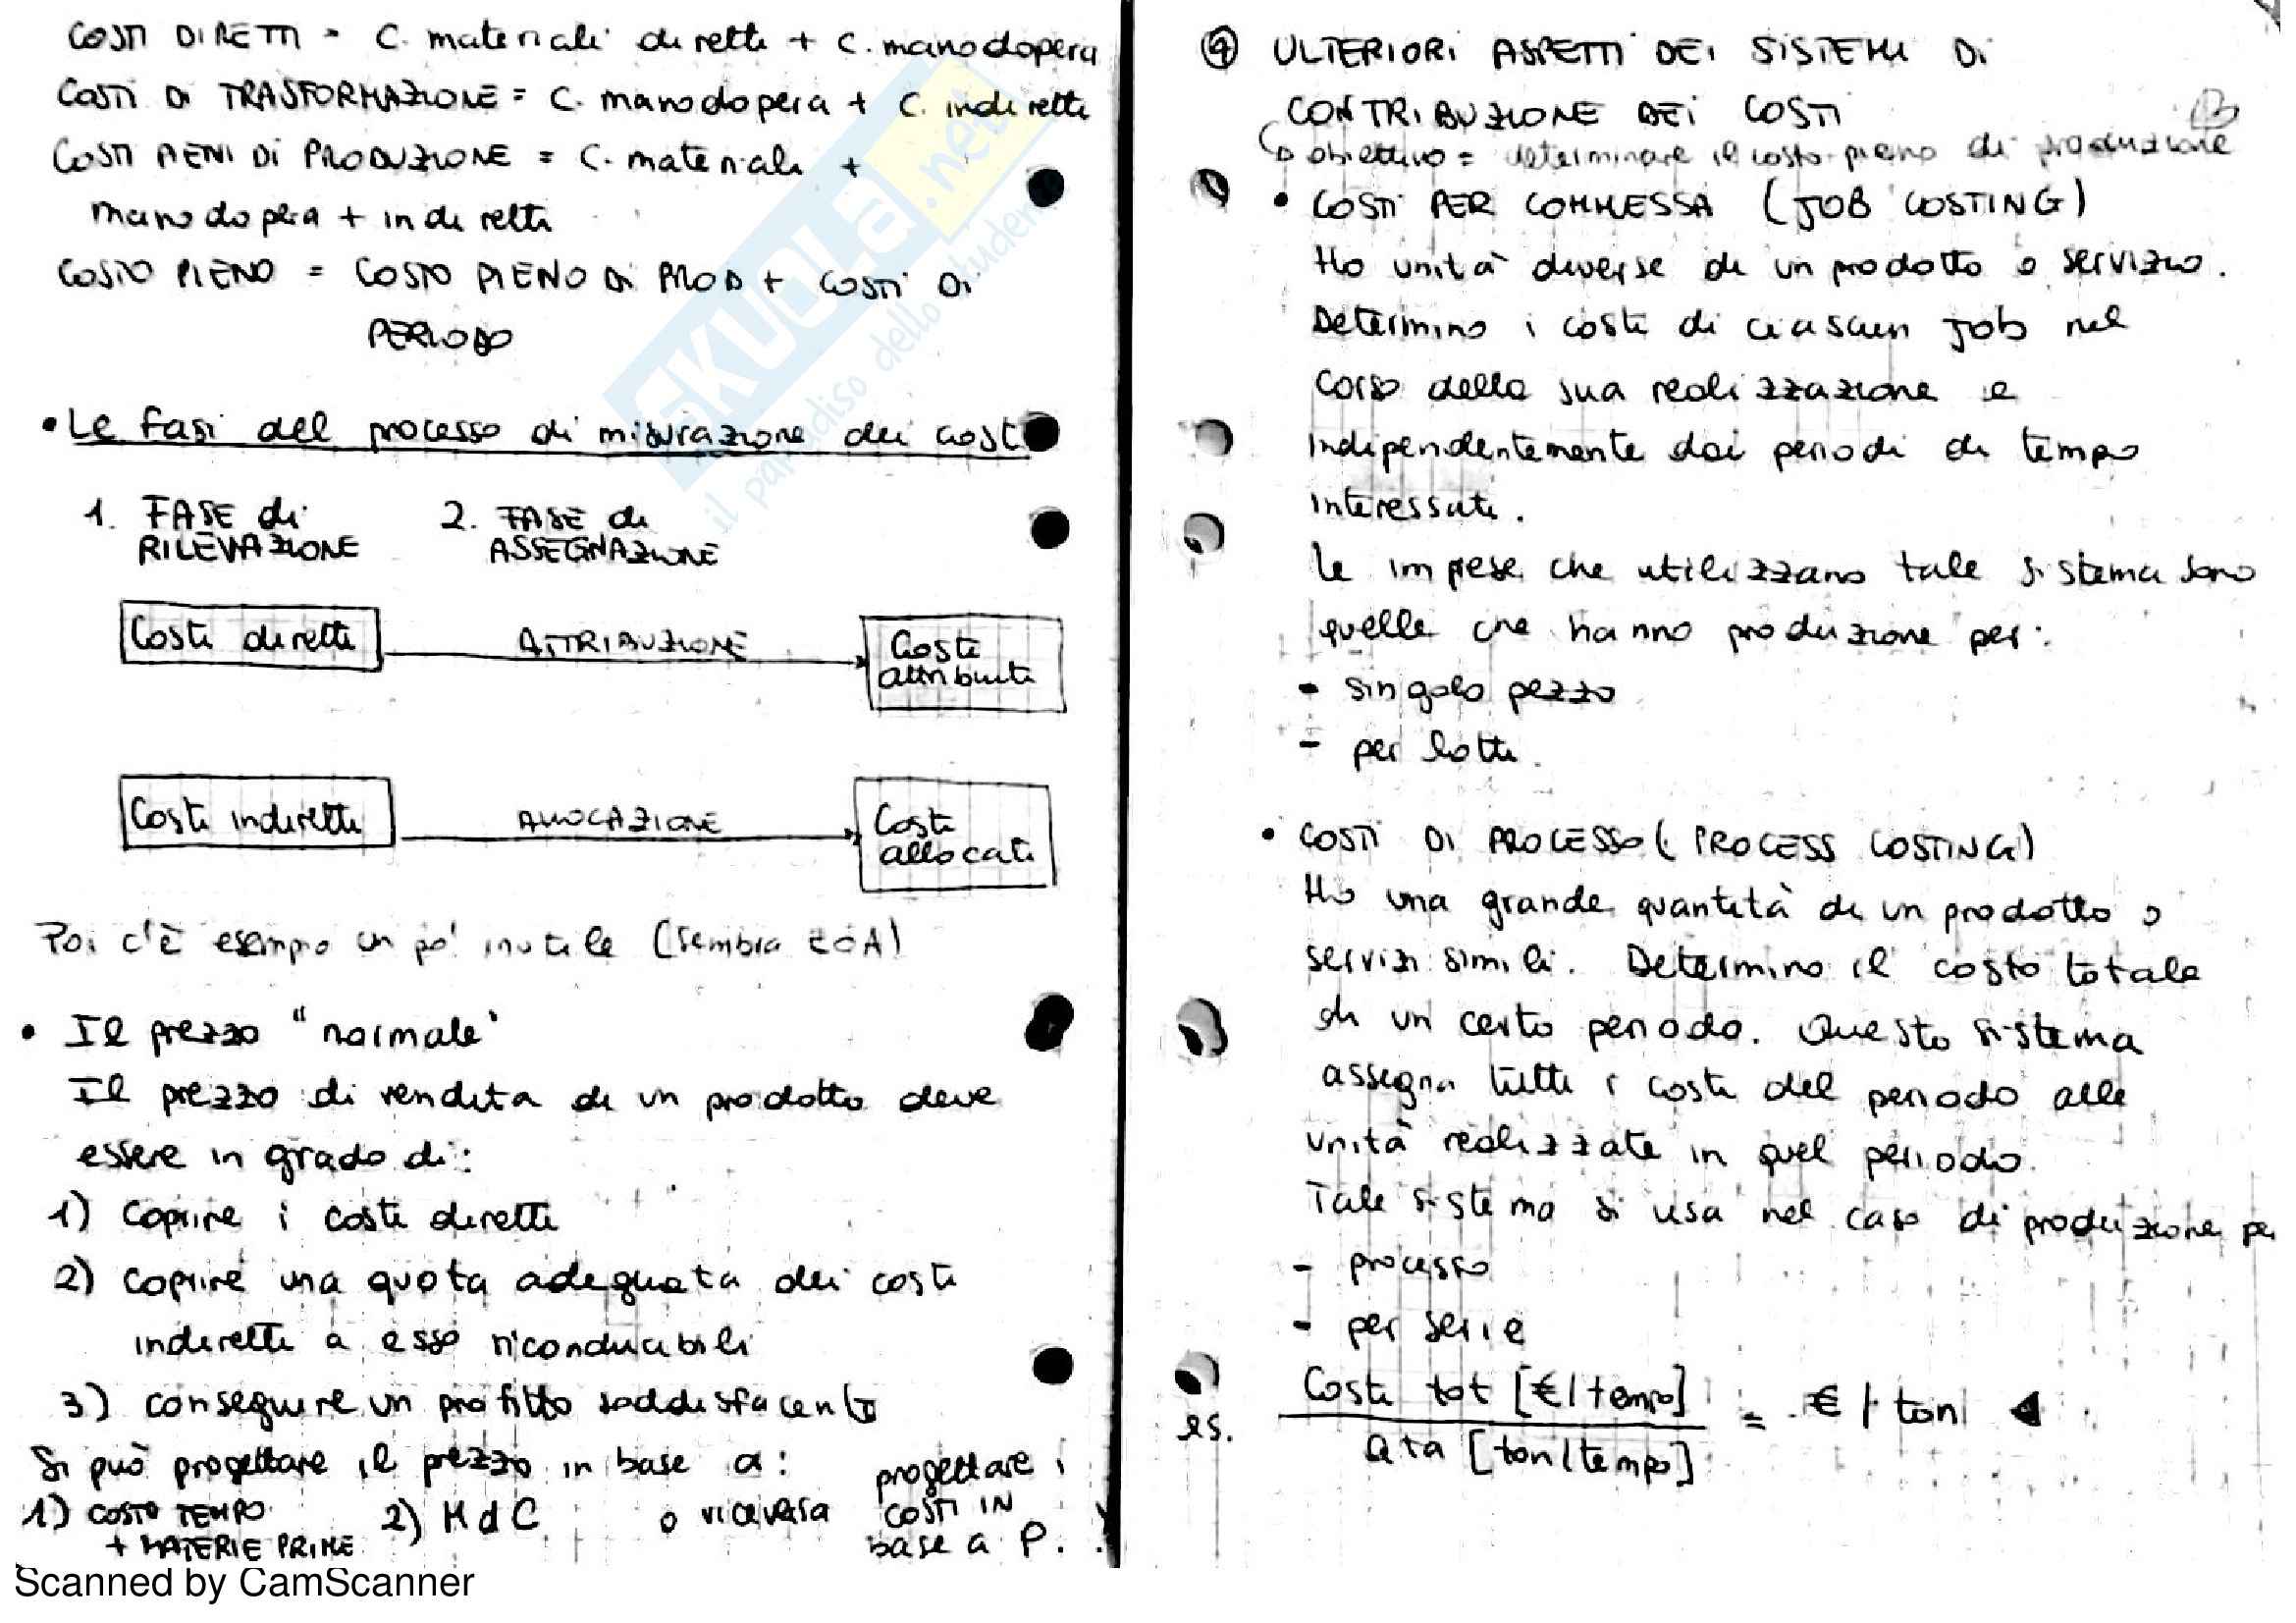 COSTI DIRETTI = C. materiali diretti + C. manodopera
COSTI DI TRASFORMAZIONE = C. manodopera + C. indiretti
COSTI PIENI DI PRODUZIONE = C. materiali +
manodopera + indiretti
COSTO PIENO = COSTO PIENO DI PROD + COSTI DI
PERIODO
• Le fasi del processo di misurazione dei costi
1. FASE di RILEVAZIONE
2. FASE di ASSEGNAZIONE
Costi diretti
ATTRIBUZIONE
Costi
attribuiti
Costi indiretti
ALLOCAZIONE
Costi
allocati
Poi c'è esempio un po' inutile (sembra EOA)
• Il prezzo "normale"
Il prezzo di vendita di un prodotto deve
essere in grado di:
1) coprire i costi diretti
2) coprire una quota adeguata dei costi
indiretti a esso riconducibili
3) conseguire un profitto soddisfacente
Si può progettare il prezzo in base a:
1) COSTO TEMPO
+ MATERIE PRIME
2) MdC
o viceversa
progettare i
COSTI IN
base a P.
Scanned by CamScanner
SKUOLA.net
il paradiso dello studente
④ ULTERIORI ASPETTI DEI SISTEMI DI
CONTRIBUZIONE DEI COSTI
obiettivo = determinare il costo pieno di produzione
• COSTI PER COMMESSA (JOB COSTING)
Ho unità diverse di un prodotto o servizio.
Determino i costi di ciascun job nel
corso della sua realizzazione e
indipendentemente dai periodi di tempo
interessati.
Le imprese che utilizzano tale sistema sono
quelle che hanno produzione per:
- singolo pezzo
- per lotti.
• COSTI DI PROCESSO (PROCESS COSTING)
Ho una grande quantità di un prodotto o
servizi simili. Determino il costo totale
di un certo periodo. Questo sistema
assegna tutti i costi del periodo alle
unità realizzate in quel periodo.
Tale sistema si usa nel caso di produzione per
- processo
- per serie
es. Costi tot [€/tempo] = € / ton
Qta [ton/tempo]